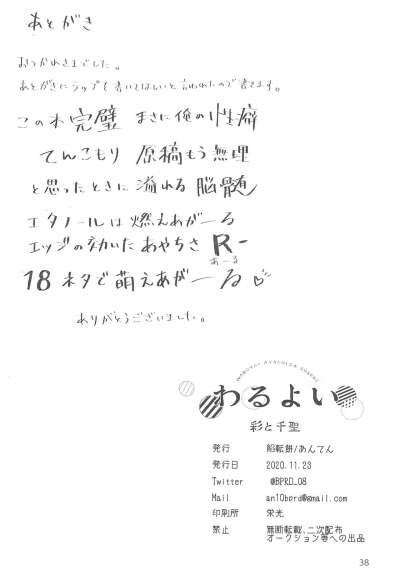 あとがき
おつかれさまでした。
あとがきにラップを書いてほしいと言われたので書きます。
この本完璧 まさに俺の性癖
てんこもり 原稿もう無理
と思ったときに溢れる脳髄
エタノールは燃えあがーる
エッジの効いたあやちさ R-
あーる
18 ネタで萌えあがーる
ありがとうございました。
わるよい
彩と千聖
発行 餡転餅/あんてん
発行日 2020.11.23
Twitter @BPRD_08
Mail an10bprd@gmail.com
印刷所 栄光
禁止 無断転載、二次配布
オークション等への出品
38